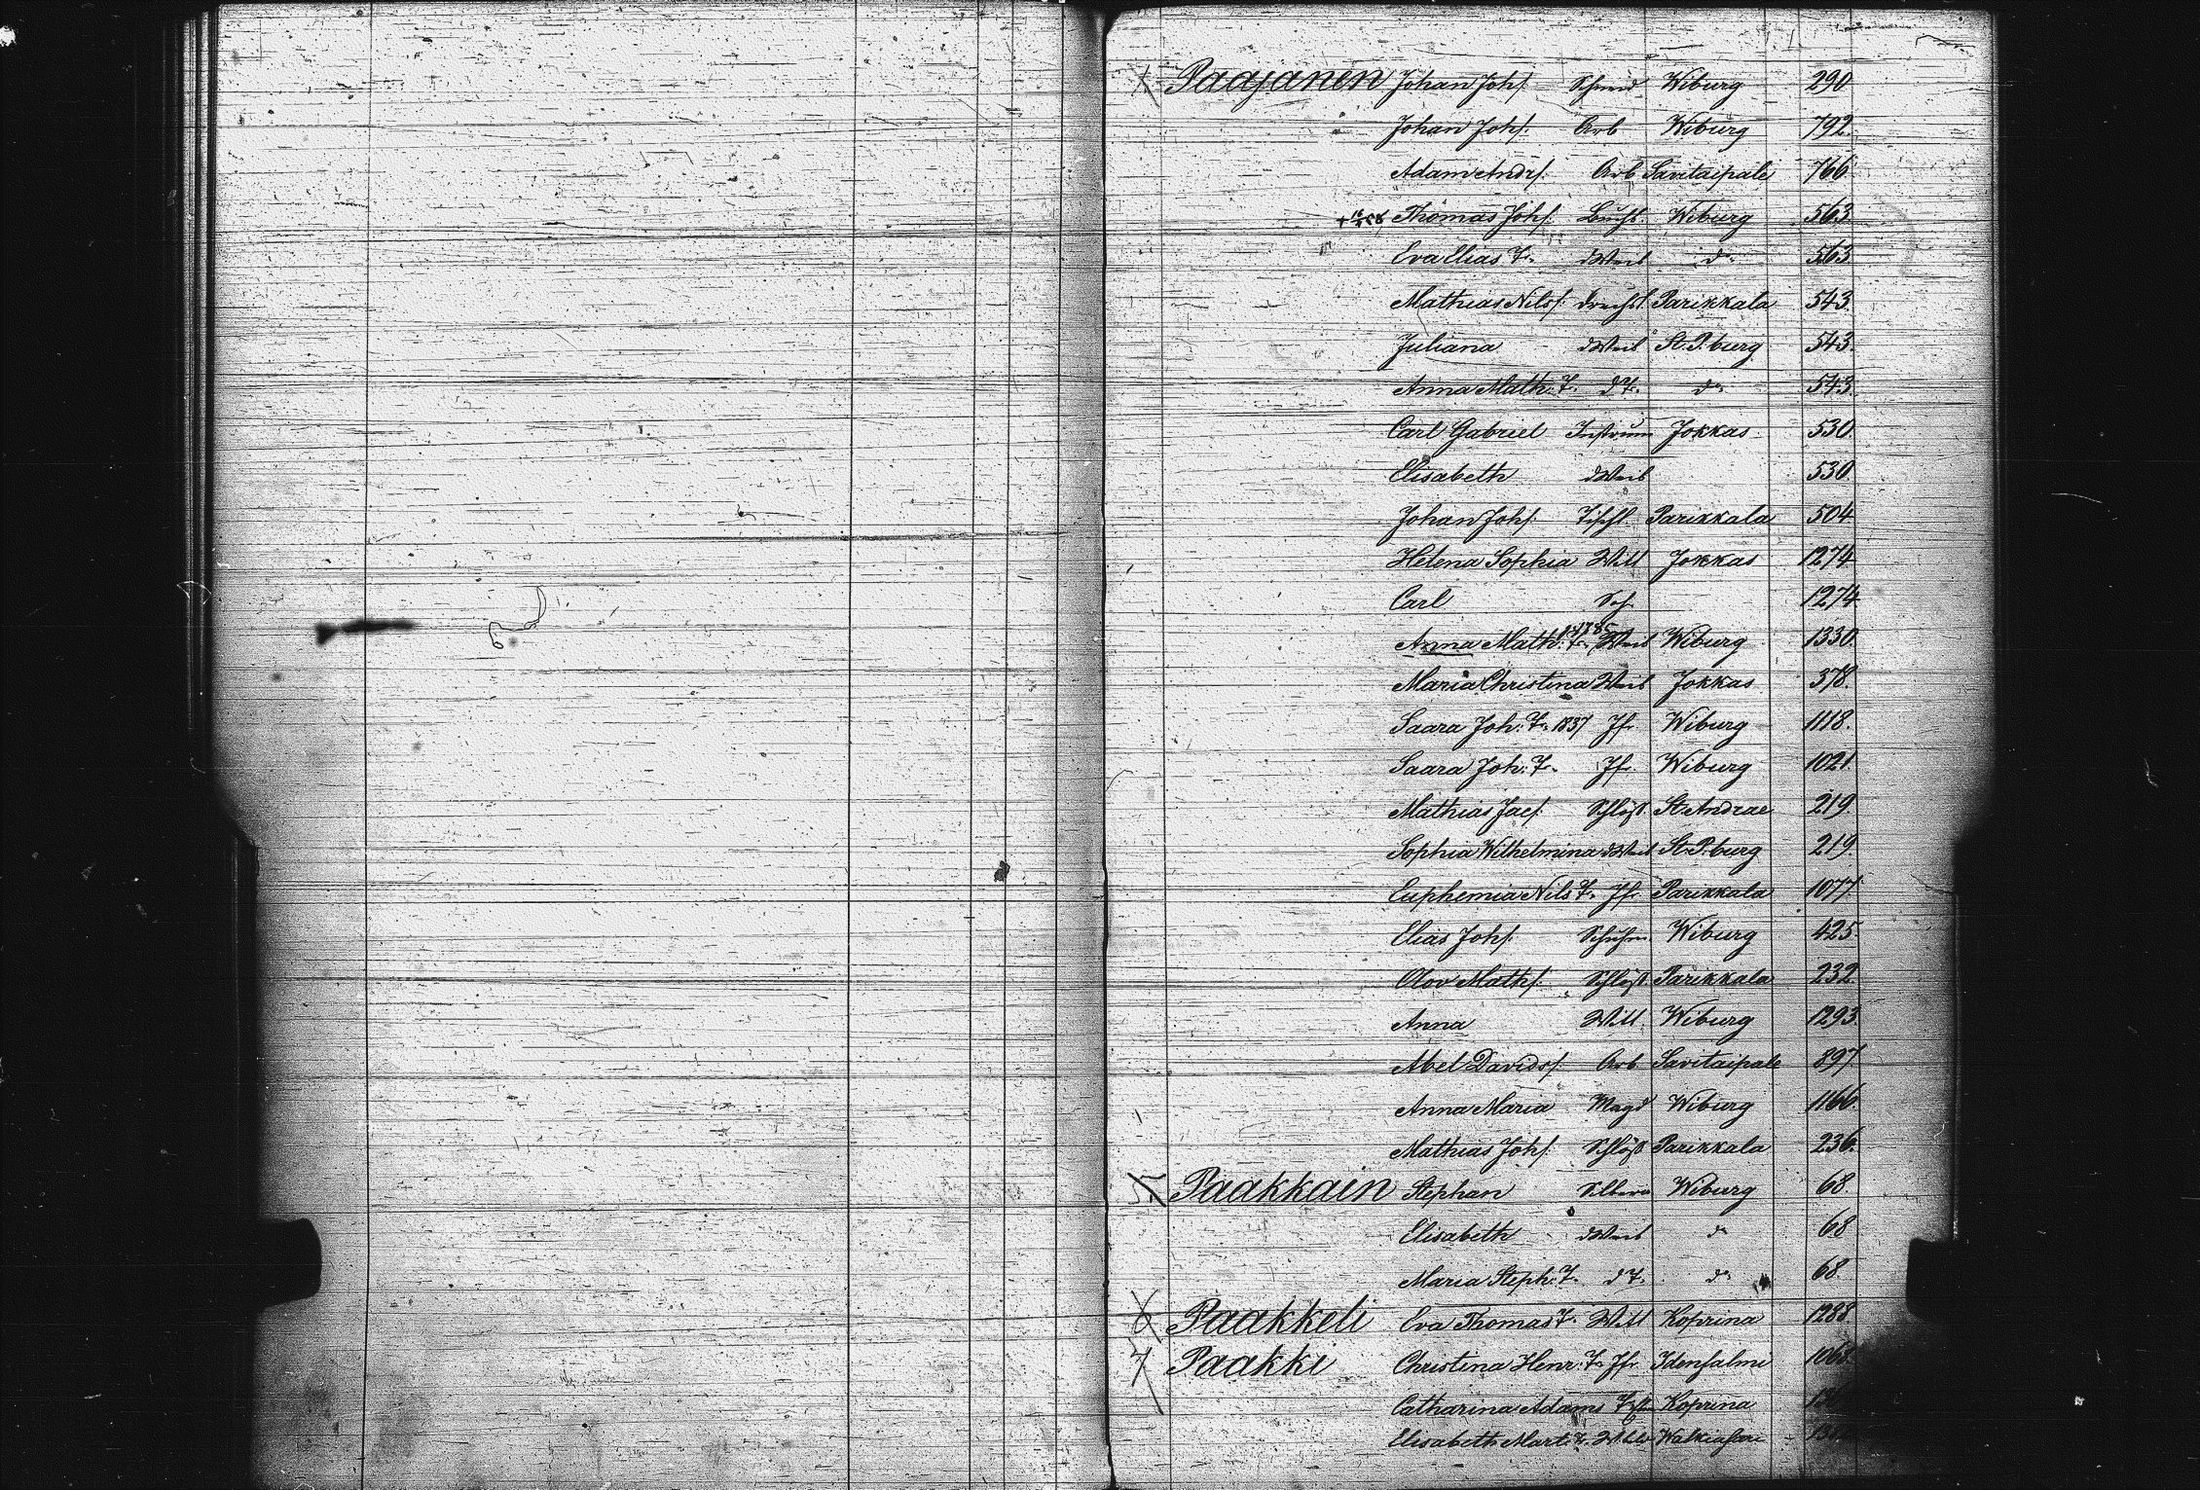 Paajanen Johan Johs. Schmid Wiburg 290
Johan Johs. Arb Wiburg 792.
Adam Andrs. Arb Savitaipale 766
Thomas Johs. Wiburg 563
Eva Elias T. d Weib do 563
Mathias Nils. Drechsl. Parikkala 543.
Juliana d Weib St. P.burg 543.
Anna Math. T. d T. do 543.
Carl Gabriel Instrum Jokkas 530.
Elisabeth d Weib 530
Johan Johs. Tischl. Parikkala 504
Helena Sophia Witt Jokkas 1274
Carl 1274
Anna Math. T. Weib Wiburg 1330.
Maria Christina Weib Jokkas 378.
Saara Joh. T. 1837 Jfr. Wiburg 1118.
Saara Joh. T. Jfr. Wiburg 1021.
Mathias Jacs. Schloss St Andrae 219.
Sophia Wilhelmina d Weib St. P.burg 219.
Euphemia Nils T. Jfr Parikkala 1077.
Elias Johs. Schuhm Wiburg 425
Olov Maths. Schloss. Parikkala 232.
Anna Witt. Wiburg 1293.
Abel Davids. Arb. Savitaipale 897
Anna Maria Magd Wiburg 1166.
Mathias Johs. Schloss Parikkala 236.
5 Paakkain Stephan Silbera Wiburg 68
Elisabeth d Weib do 68
Maria Steph. T. d T. do 68.
6 Paakkeli Eva Thomas T. Witt Koprina 1288.
7 Paakki Christina Henr. T. Jfr. Idensalmi 1068.
Catharina Adams T. Koprina
Elisabeth Mart. T. Walkeasari